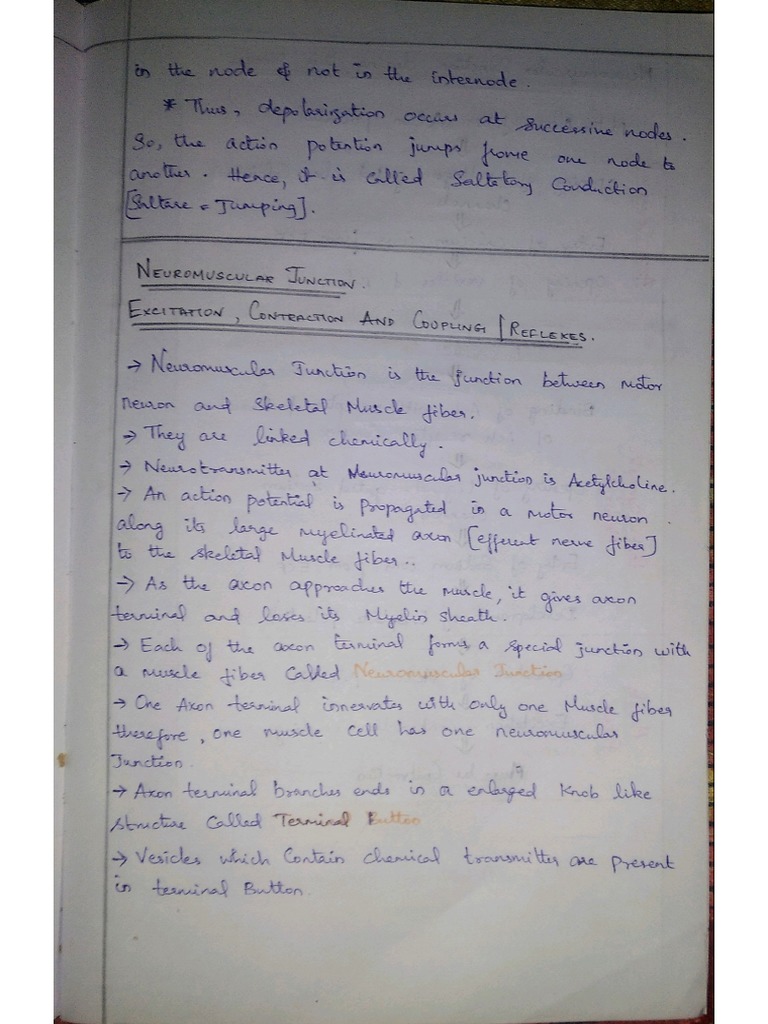 in the node & not in the internode.
* Thus, depolarization occurs at successive nodes.
So, the action potention jumps frome one node to
another. Hence, it is called Saltatory Conduction
[Saltare = Jumping].
NEUROMUSCULAR JUNCTION.
EXCITATION, CONTRACTION AND COUPLING / REFLEXES.
→ Neuromuscular Junction is the junction between motor
neuron and Skeletal Muscle fiber.
→ They are linked chemically.
→ Neurotransmitter at Neuromuscular junction is Acetylcholine.
→ An action potential is propagated in a motor neuron
along its large myelinated axon [efferent nerve fiber]
to the skeletal Muscle fiber..
→ As the axon approaches the muscle, it gives axon
terminal and loses its Myelin sheath.
→ Each of the axon terminal forms a special junction with
a muscle fiber called Neuromuscular Junction
→ One Axon terminal innervates with only one Muscle fiber
therefore, one muscle cell has one neuromuscular
Junction.
→ Axon terminal branches ends in a enlarged Knob like
structure called Terminal Button
→ Vesicles which contain chemical transmitter are present
in terminal Button.